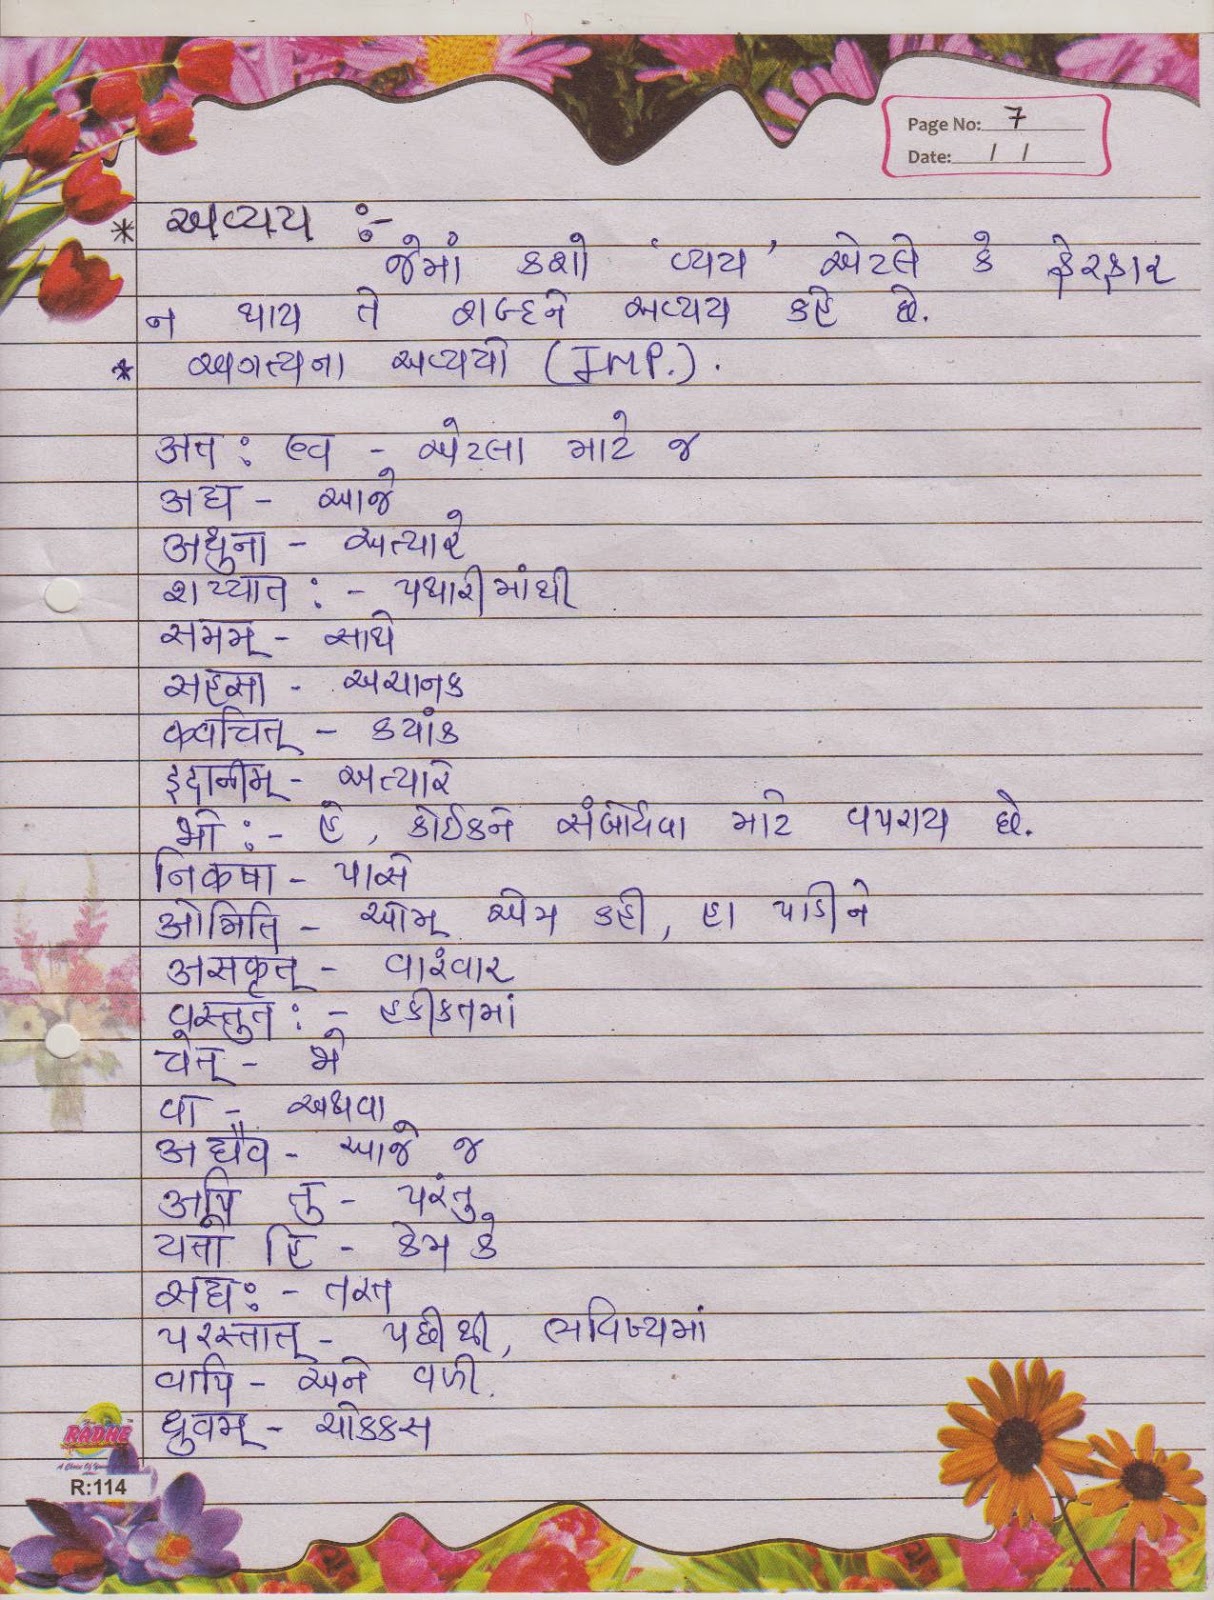 Page No: 7
Date: / /
* અવ્યય :-
જેમાં કશો 'વ્યય' એટલે કે ફેરફાર
ન થાય તે શબ્દને અવ્યય કહે છે.
* અગત્યના અવ્યયો (IMP.).
अतः एव - એટલા માટે જ
अद्य - આજે
अधुना - અત્યારે
शय्यातः - પથારીમાંથી
समम् - સાથે
सहसा - અચાનક
क्वचित् - કયાંક
इदानीम् - અત્યારે
भोः - હે, કોઈકને સંબોધવા માટે વપરાય છે.
निकषा - પાસે
ओमिति - ઓમ્ એમ કહી, હા પાડીને
असकृत् - વારંવાર
वस्तुतः - હકીકતમાં
चेत् - જો
वा - અથવા
अद्यैव - આજે જ
अपि तु - પરંતુ
यतो हि - કેમ કે
सद्यः - તરત
परस्तात् - પછીથી, ભવિષ્યમાં
वापि - અને વળી.
ध्रुवम् - ચોકકસ
RADHE
R:114